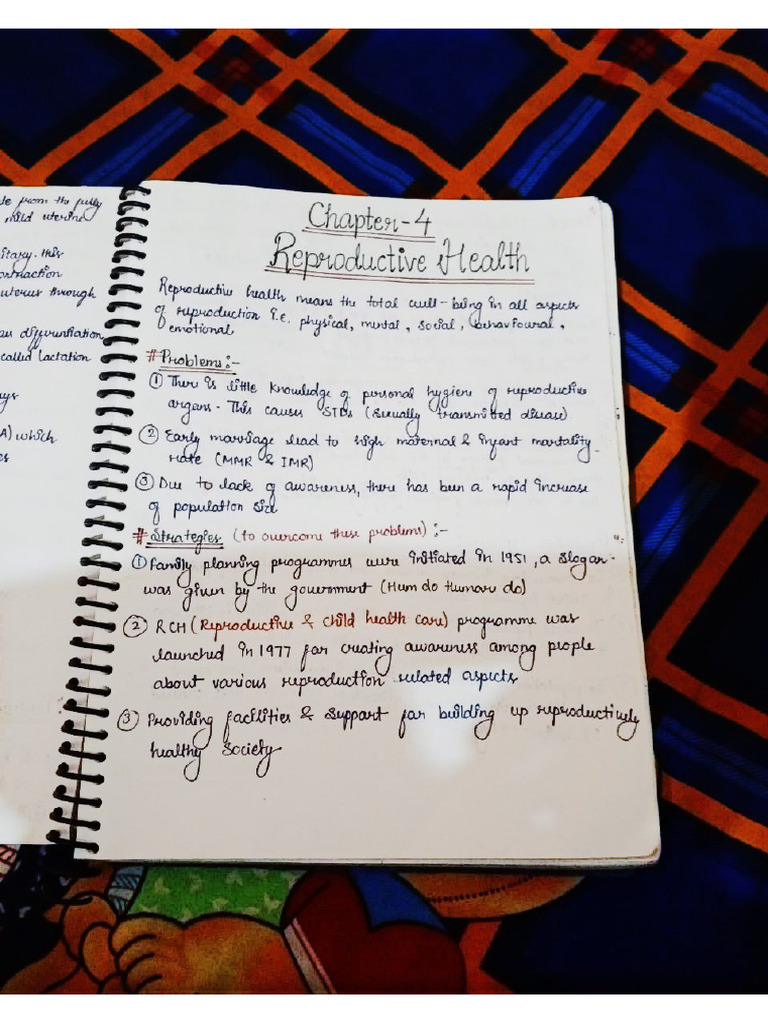 te from the fully
mild uterine
itary. this
contraction
uterus through
differentiation
called lactation
A) which
Chapter-4
Reproductive Health
Reproductive health means the total well-being in all aspects
of reproduction i.e. physical, mental, social, behavioural,
emotional
# Problems:-
① There is little knowledge of personal hygiene of reproductive
organs. This causes STDs (sexually transmitted disease)
② Early marriage lead to high maternal & infant mortality
rate (MMR & IMR)
③ Due to lack of awareness, there has been a rapid increase
of population size
# Strategies (to overcome these problems) :-
① Family planning programmes were initiated in 1951, a slogan
was given by the government (Hum do Humare do)
② RCH (Reproductive & child health care) programme was
launched in 1977 for creating awareness among people
about various reproduction related aspects
③ Providing facilities & support for building up reproductively
healthy society